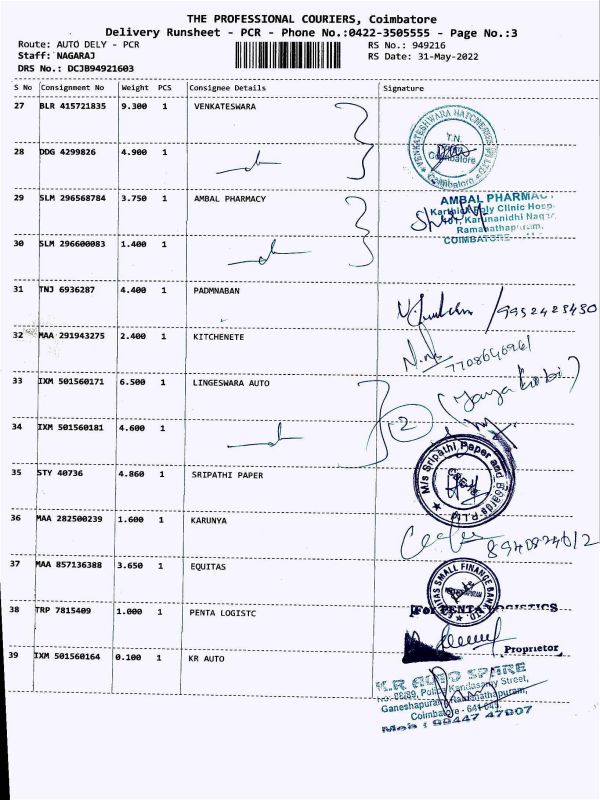 THE PROFESSIONAL COURIERS, Coimbatore
Delivery Runsheet - PCR - Phone No.:0422-3505555 - Page No.:3
Route: AUTO DELY - PCR
RS No.: 949216
Staff: NAGARAJ
RS Date: 31-May-2022
DRS No.: DCJB94921603
S No Consignment No Weight PCS Consignee Details Signature
27 BLR 415721835 9.300 1 VENKATESWARA
VENKATESHWARA HATCHERIES
T.N.
Coimbatore
Coimbatore
28 DDG 4299826 4.900 1
29 SLM 296568784 3.750 1 AMBAL PHARMACY
AMBAL PHARMACY
Clinic Hosp.
Karunanidhi Nagar
Ramanathapuram,
COIMBATORE
30 SLM 296600083 1.400 1
31 TNJ 6936287 4.400 1 PADMNABAN
32 MAA 291943275 2.400 1 KITCHENETE
33 IXM 501560171 6.500 1 LINGESWARA AUTO
2
34 IXM 501560181 4.600 1
35 STY 40736 4.860 1 SRIPATHI PAPER
M/s Sripathi Paper and Boards P. Ltd.
36 MAA 282500239 1.600 1 KARUNYA
37 MAA 857136388 3.650 1 EQUITAS
EQUITAS SMALL FINANCE BANK LTD.
38 TRP 7815409 1.000 1 PENTA LOGISTC
For PENTA LOGISTICS
Proprietor
39 IXM 501560164 0.100 1 KR AUTO
K.R AUTO SPARE
Kandasamy Street,
Ganeshapuram, Ramanathapuram,
Coimbatore - 641 045.
Mob : 99447 47607